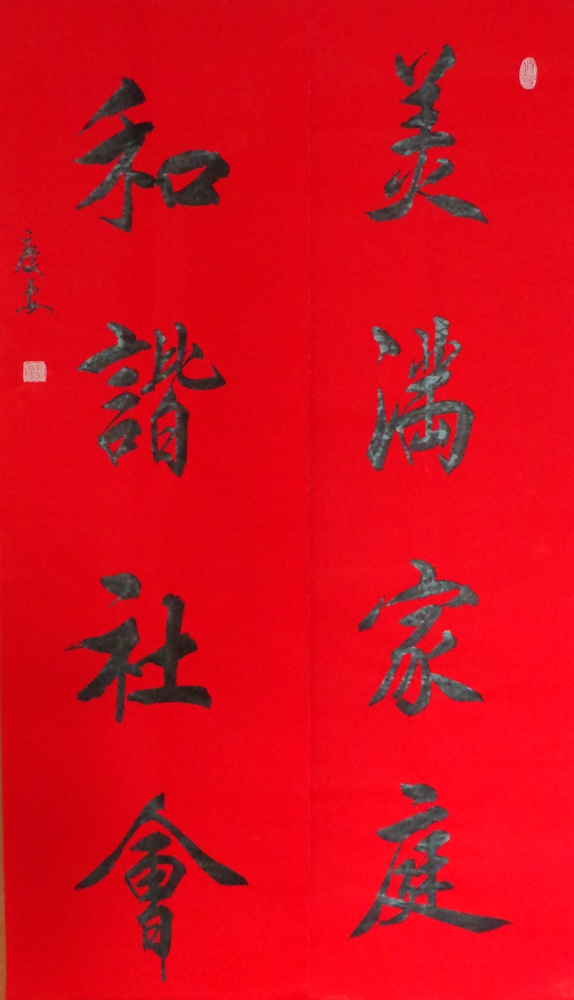 美满家庭
和諧社會